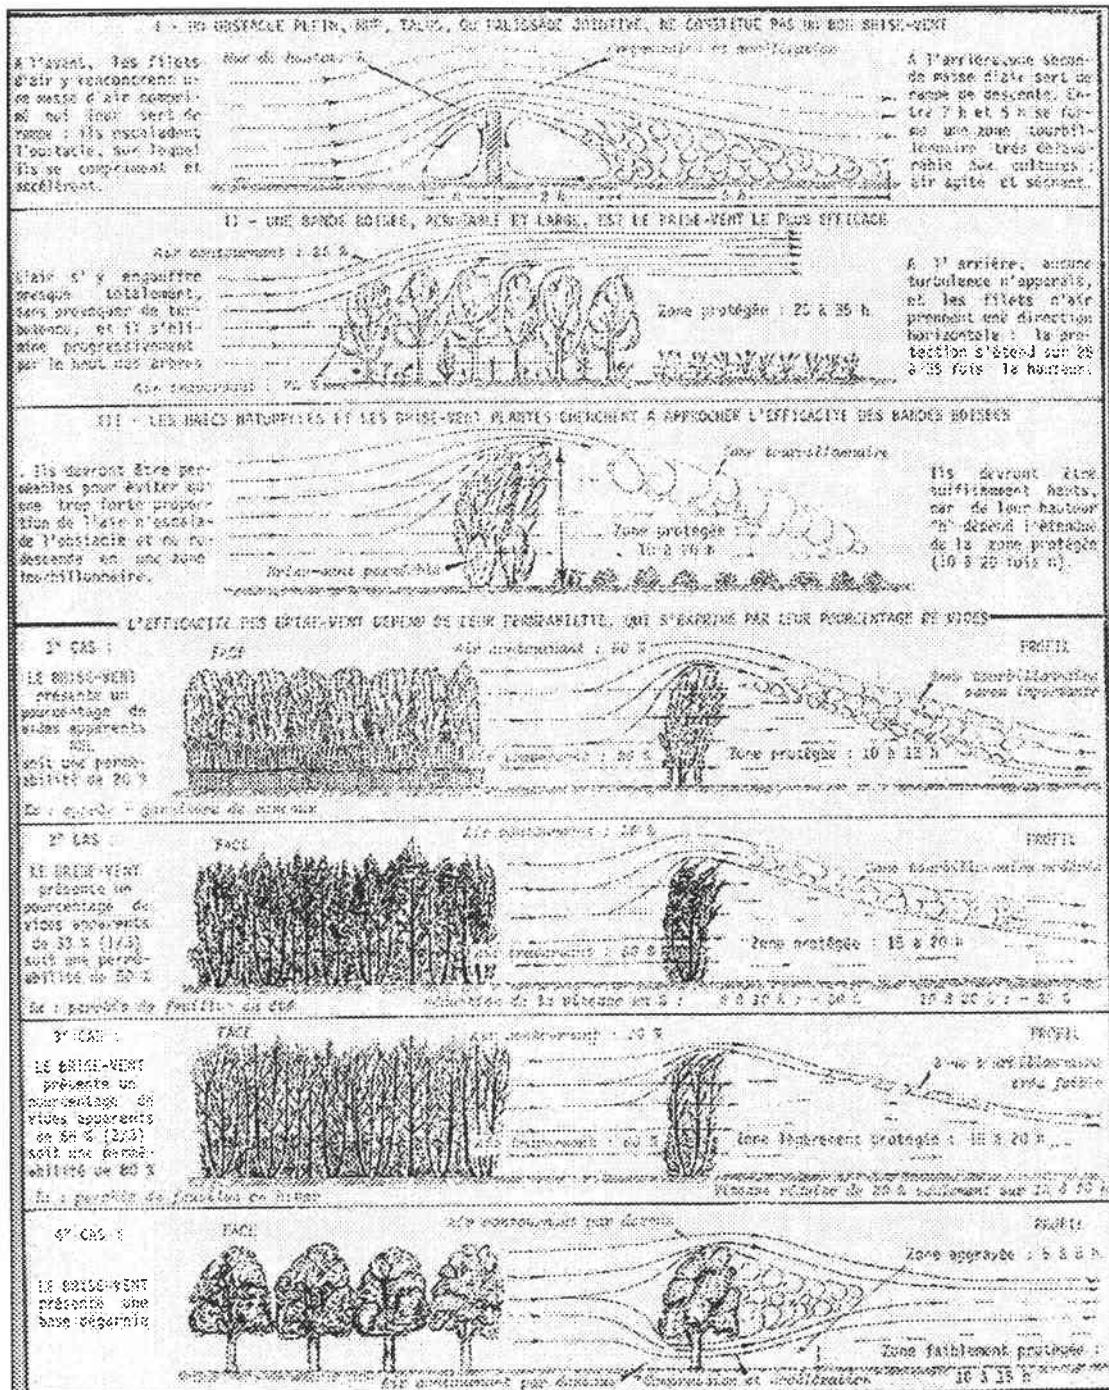 I - UN OBSTACLE PLEIN, MUR, TALUS, OU PALISSADE JOINTIVE, NE CONSTITUE PAS UN BON BRISE-VENT
A l'avant, les filets
d'air y rencontrent u-
ne masse d'air compri-
mé qui leur sert de
rampe : ils escaladent
l'obstacle, sur lequel
ils se compriment et
accélèrent.
Mur de hauteur h
Compression et accélération
A l'arrière, une secon-
de masse d'air sert de
rampe de descente. En-
tre 2 h et 5 h se for-
me une zone tourbil-
lonnaire très défavo-
rable aux cultures :
air agité et séchant.
h
2 h
5 h
II - UNE BANDE BOISEE, PERMEABLE ET LARGE, EST LE BRISE-VENT LE PLUS EFFICACE
Air contournant : 25 %
L'air s'y engouffre
presque totalement,
sans provoquer de tur-
bulence, et il s'éli-
mine progressivement
par le haut des arbres
Zone protégée : 25 à 35 h
Air traversant : 75 %
A l'arrière, aucune
turbulence n'apparaît,
et les filets d'air
prennent une direction
horizontale : la pro-
tection s'étend sur 25
à 35 fois la hauteur.
III - LES HAIES NATURELLES ET LES BRISE-VENT PLANTES CHERCHENT A APPROCHER L'EFFICACITE DES BANDES BOISEES
. Ils devront être per-
méables pour éviter qu'
une trop forte propor-
tion de l'air n'escala-
de l'obstacle et ne re-
descende en une zone
tourbillonnaire.
Zone tourbillonnaire
Zone protégée :
10 à 20 h
Brise-vent perméable
Ils devront être
suffisamment hauts,
car de leur hauteur
"h" dépend l'étendue
de la zone protégée
(10 à 20 fois h).
L'EFFICACITE DES BRISE-VENT DEPEND DE LEUR PERMEABILITE, QUI S'EXPRIME PAR LEUR POURCENTAGE DE VIDES
CAS :
FACE
PROFIL
LE BRISE-VENT
présente un
pourcentage de
vides apparents
NUL
soit une permé-
abilité de 20 %
Air contournant : 80 %
Zone tourbillonnaire
Air traversant : 20 %
Zone protégée : 10 à 12 h
2° CAS :
FACE
PROFIL
LE BRISE-VENT
présente un
pourcentage de
vides apparents
de 33 % (1/3)
soit une permé-
abilité de 50 %
Air contournant :
Zone tourbillonnaire
Air traversant :
Zone protégée : 15 à 20 h
Ex : peuplier de feuilles en été
3° CAS :
FACE
PROFIL
LE BRISE-VENT
présente un
pourcentage de
vides apparents
de 66 % (2/3)
soit une permé-
abilité de 80 %
Air contournant : 20 %
Zone tourbillonnaire
très faible
Air traversant : 80 %
Zone légèrement protégée : 15 à 20 h
4° CAS :
FACE
PROFIL
LE BRISE-VENT
présente une
base dégarnie
Air contournant par dessus
Zone aggravée : 5 à 8 h
Zone faiblement protégée :
10 à 15 h
Air contournant par dessous
Compression et accélération